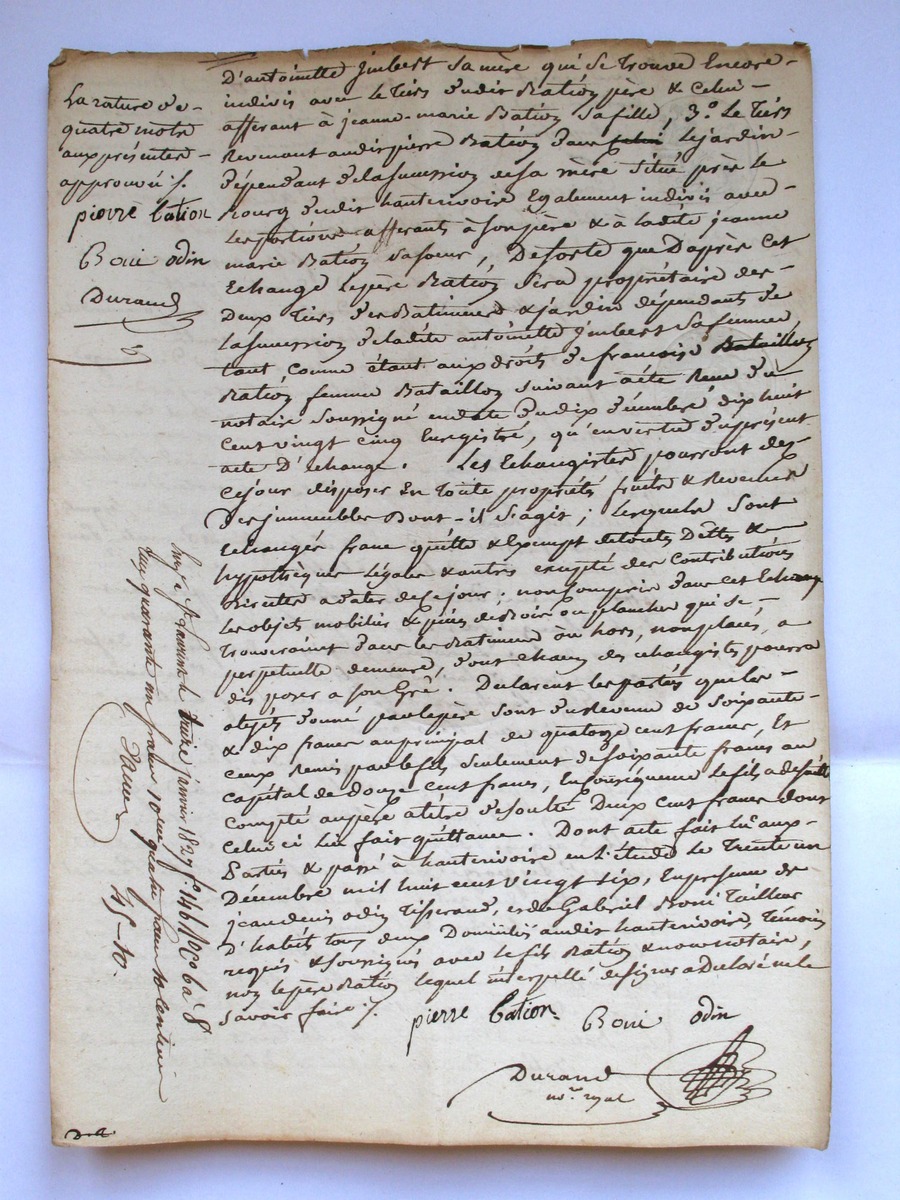 La rature de
quatre mots
aux présentes
approuvé ./.
pierre bation
Boni odin
Durand
D'antoinette jmbert sa mère qui se trouve Encore
indivis avec le tiers dudit Bation père & celui
afferant à jeanne-marie Bation sa fille, 3.o Le tiers
Revenant audit pierre Bation dans le jardin
dépendant de la succession de sa mère situé près le
Bourg dudit hauterivoire Egalement indivis avec
les portions afferants à son père & à ladite jeanne
marie Bation sa soeur, De sorte que D'après cet
Echange le père Bation sera propriétaire des
Deux tiers des Batiments & jardin dépendants de
la succession de ladite antoinette jmbert sa femme
tant comme étant aux droits de françoise
Bation femme Bataillon suivant acte Reçu du
notaire soussigné en date du dix décembre dix huit
cent vingt cinq Enregistré, qu'en vertu du présent
acte D'échange. Les Echangistes pourront dès
ce jour disposer En toute propriété fruits & Revenus
Des jmmeubles Dont-il s'agit; lesquels sont
Echangés franc quitte & Exempt de toutes Dettes &
hypothèques légales & autres excepté des Contributions
Directes a dater de ce jour; non Compris dans cet Echange
les objets mobiliers & pièces de Bois ou plancher qui se
trouveraient dans les Batiments ou hors, non placés, a
perpetuelle demeure, dont chacun des echangistes pourra
dis poser a son Gré. Declarent les parties que les
objets donné par le père sont du Revenu de soixante
& dix francs au principal de quatorze cent francs, Et
ceux Remis par le fils seulement de soixante francs au
capital de douze cent francs, En conséquence le fils a de suitte
compté au père a titre de soulte Deux cent francs dont
celui ci lui fait quittance. Dont acte fait lu aux
parties & passé à hauterivoire en L'étude Le trente un
Décembre mil huit cent vingt six, En présence de
jean denis odin tisserand, et de Gabriel Boni tailleur
D'habits tous deux Domiciliés audit hauterivoire, témoins
requis & soussignés avec le fils Bation & nous notaire,
non le père Bation lequel interpellé de signer a Declaré ne le
savoir faire ./.
pierre bation. Boni odin
Durand
no.re royal
janvier 1827 f.o 146 R.o C.es 6 a 8
quarante un francs
45-10.